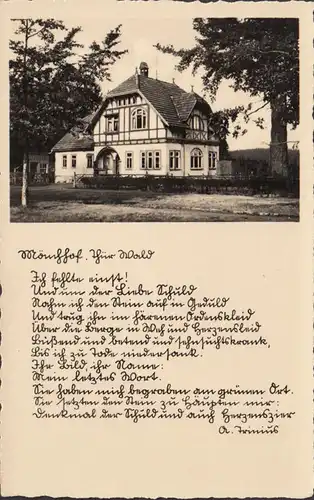 Mönchhof, Thür Wald
Ich fehlte einst!
Und um der Liebe Schuld
Nahm ich den Stein auf in Geduld
Und trug ihn im härenen Ordenskleid
Über die Berge in Weh und Herzensleid
Büßend und betend und sehnsuchtskrank,
Bis ich zu Tode niedersank.
Ihr Bild, ihr Name:
Mein letztes Wort.
Sie haben mich begraben am grünen Ort.
Sie setzten den Stein zu Häupten mir:
Denkmal der Schuld und auch Herzenszier
A. Trinius